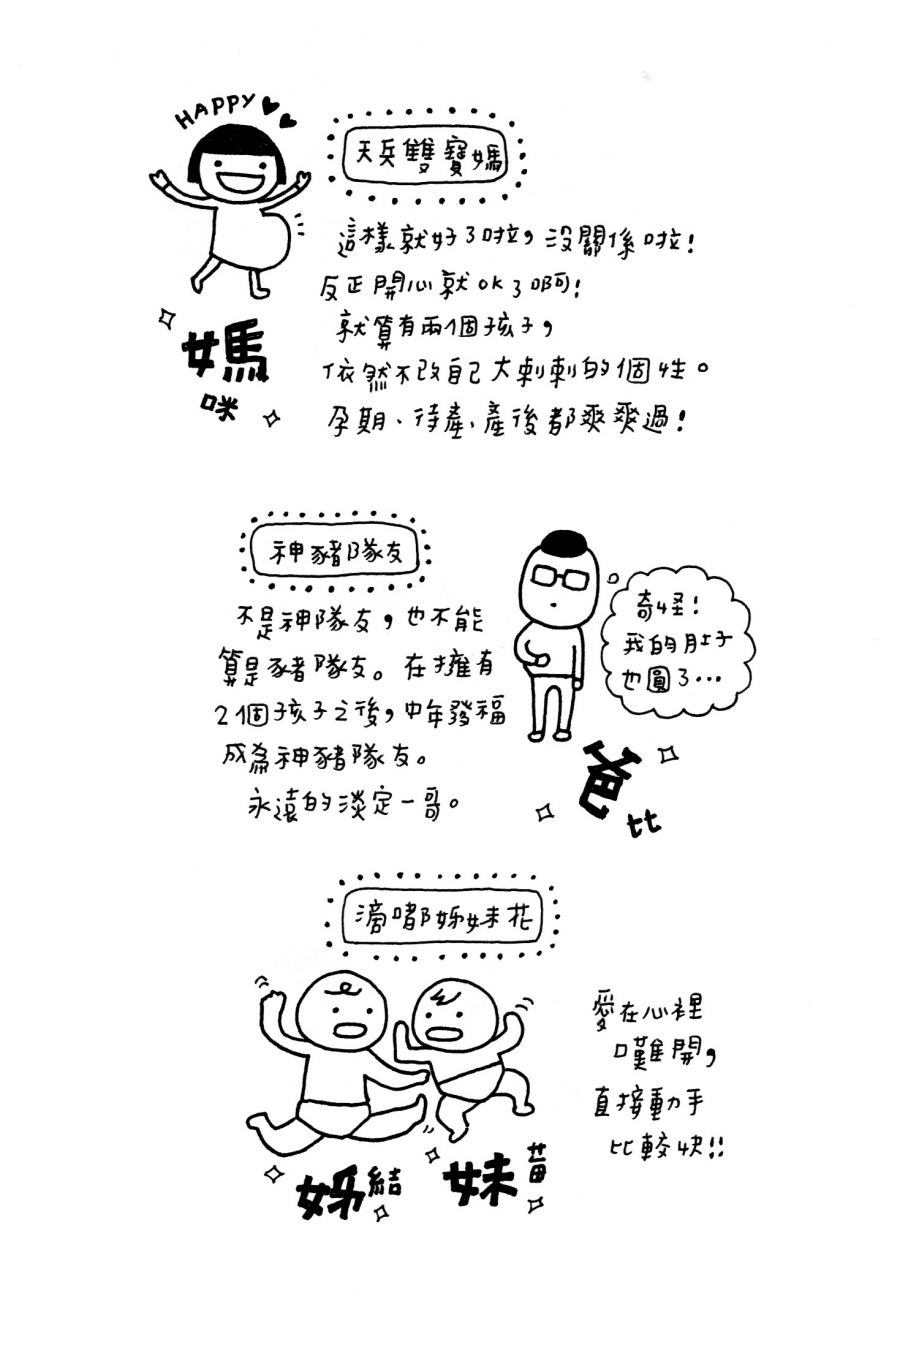 HAPPY
天兵雙寶媽
這樣就好了啦，沒關係啦！
反正開心就OK了啊！
就算有兩個孩子，
依然不改自己大剌剌的個性。
孕期、待產、產後都爽爽過！
媽
咪
神豬隊友
不是神隊友，也不能
算是豬隊友。在擁有
2個孩子之後，中年發福
成為神豬隊友。
永遠的淡定一哥。
奇怪！
我的肚子
也圓了...
爸
比
滴嘟姊妹花
愛在心裡
口難開，
直接動手
比較快!!
姊結
妹苗